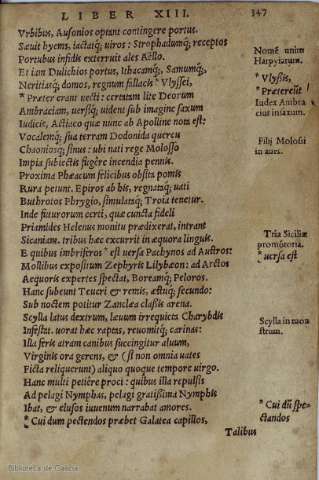 LIBER XIII.
347
Vrbibus, Ausonios optant contingere portus.
Sæuit hyems, iactatq; uiros: Strophadumq; receptos
Portubus infidis exterruit ales Aëllo.
Et iam Dulichios portus, Ithacamq́;, Samumq́;,
Neritiasq́; domos, regnum fallacis * Vlyssei,
* Præter erant uecti: certatam lite Deorum
Ambraciam, uersiq́; uident sub imagine saxum
Iudicis, Actiaco quæ nunc ab Apolline nota est:
Vocalemq́; sua terram Dodonida quercu
Chaoniosq́; sinus: ubi nati rege Molosso
Impia subiectis fugêre incendia pennis.
Proxima Phæacum felicibus obsita pomis
Rura petunt. Epiros ab his, regnataq́; uati
Buthrotos Phrygio, simulataq́; Troia tenetur.
Inde futurorum certi, quæ cuncta fideli
Priamides Helenus monitu prædixerat, intrant
Sicaniam. tribus hæc excurrit in æquora linguis.
E quibus imbriferos * est uersa Pachynos ad Austros:
Mollibus expositum Zephyris Lilybæon: ad Arctos
Aequoris expertes spectat, Boreamq́; Peloros.
Hanc subeunt Teucri & remis, æstuq́; secundo:
Sub noctem potitur Zanclæa classis arena.
Scylla latus dextrum, læuum irrequieta Charybdis
Infestat. uorat hæc raptas, reuomitq́; carinas:
Illa feris atram canibus succingitur aluum,
Virginis ora gerens, & (si non omnia uates
Ficta reliquerunt) aliquo quoque tempore uirgo.
Hanc multi petiêre proci: quibus illa repulsis
Ad pelagi Nymphas, pelagi gratissima Nymphis
Ibat, & elusos iuuenum narrabat amores.
* Cui dum pectendos præbet Galatea capillos,
Talibus
Nomẽ unius
Harpyiarum.
* Vlyssis,
* Præteruecti
Iudex Ambra
cius in saxum.
Filij Molossi
in aues.
Tria Siciliæ
promõtoria.
* uersa est
Scylla in mon
strum.
* Cui dũ spe-
ctandos
Biblioteca de Galicia